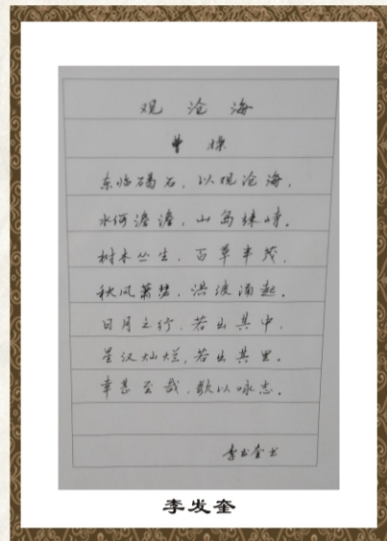 观沧海
曹操
东临碣石，以观沧海。
水何澹澹，山岛竦峙。
树木丛生，百草丰茂。
秋风萧瑟，洪波涌起。
日月之行，若出其中，
星汉灿烂，若出其里。
幸甚至哉，歌以咏志。
李发奎书
李发奎